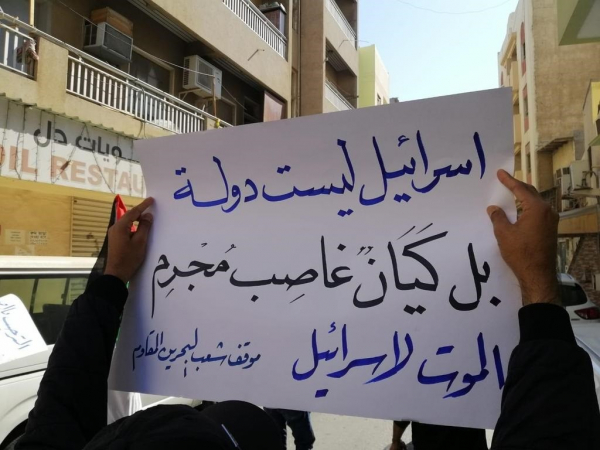 ـويات دل
OIL RESTAU
اسرائيل ليست دولة
بل كَيَانٌ غاصِب مُجْرِم
الموت لاسرائيل
موقف شعب البحرين المقاوم